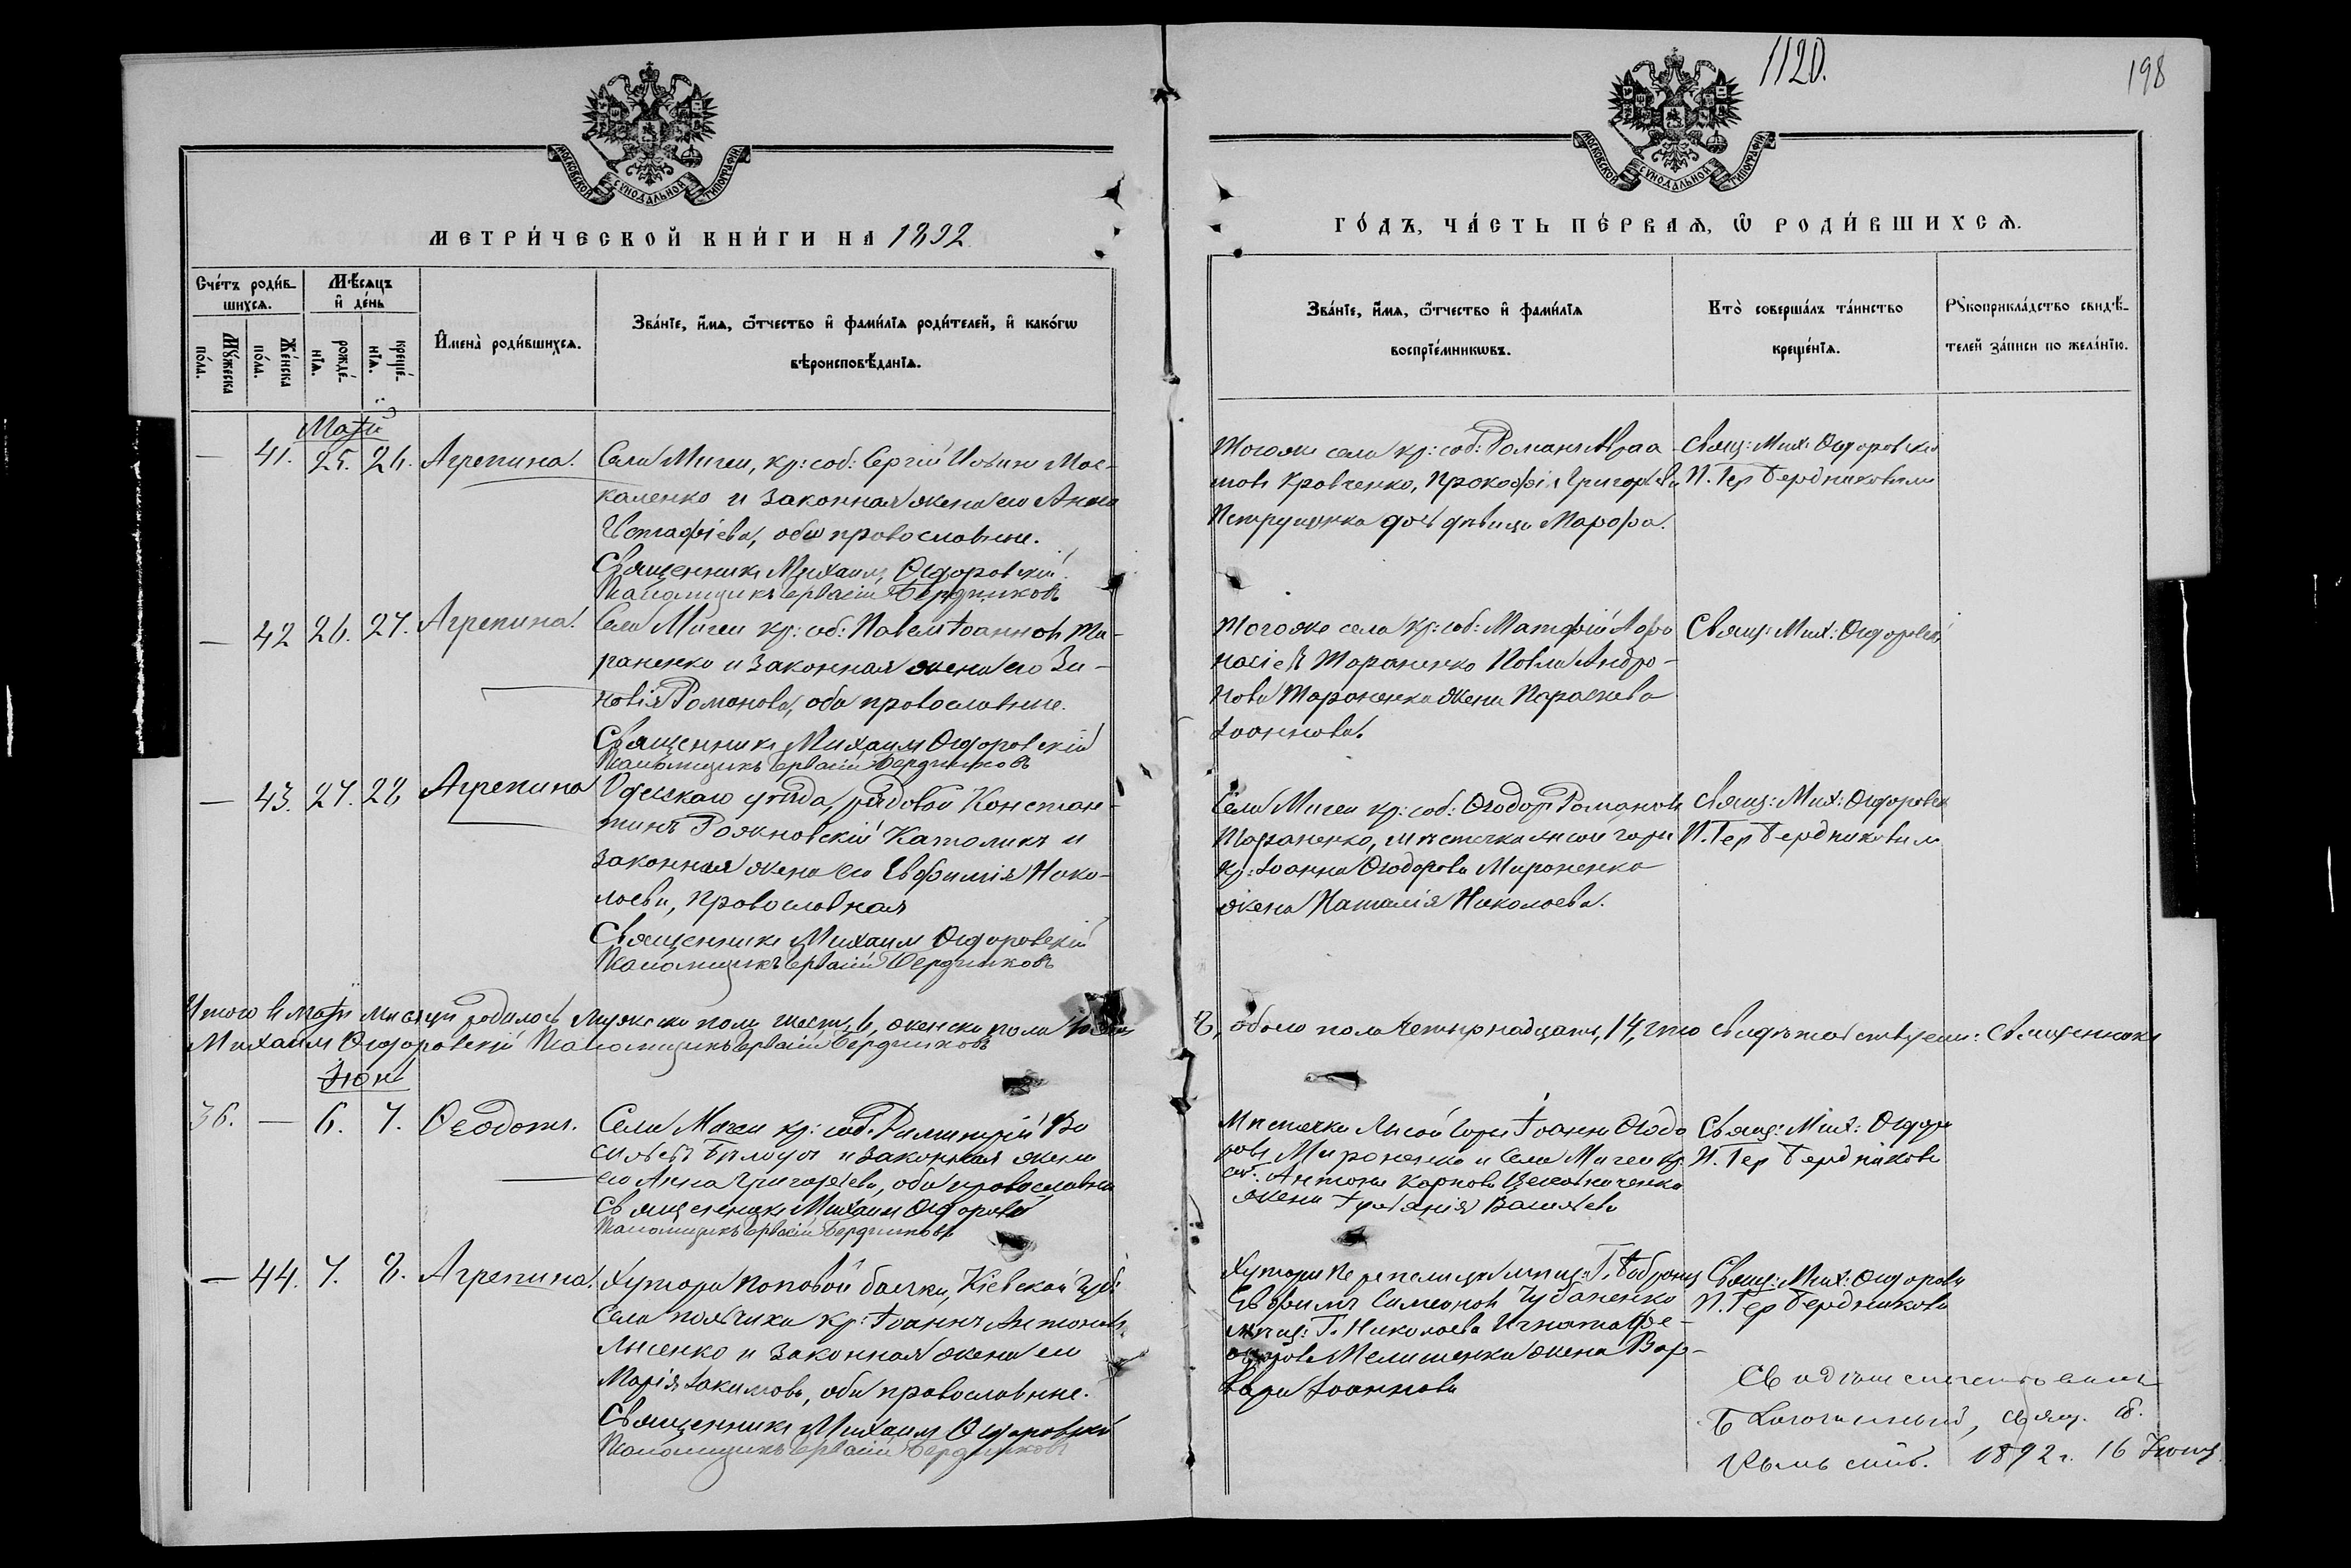 1120.
198
МОСКОВСКОЙ СѴНОДАЛЬНОЙ ТИПОГРАФІИ
МОСКОВСКОЙ СѴНОДАЛЬНОЙ ТИПОГРАФІИ
МЕТРИ́ЧЕСКОЙ КНИ́ГИ НА 1892
ГО́ДЪ, ЧА́СТЬ ПЕ́РВАѦ, Ѿ РОДИ́ВШИХСѦ.
Сче́тъ роди́в-
шихсѧ.
Мꙋ́жеска по́ла.
Же́нска по́ла.
Мѣ́сѧцъ
и҆ де́нь
рожде́-нїѧ.
креще́-нїѧ.
И҆мена̀ роди́вшихсѧ.
Зва́нїе, и҆́мѧ, ѻ҆́тчество и҆ фами́лїѧ роди́телей, и҆ како́гѡ
вѣроисповѣ́данїѧ.
Зва́нїе, и҆́мѧ, ѻ҆́тчество и҆ фами́лїѧ
воспрїе́мникѡвъ.
Кто̀ соверша́лъ та́инство
креще́нїѧ.
Рꙋкоприкла́дство свидѣ́-
телей за́писи по жела́нїю.
Май
— 41. 25. 26. Агрепина.
Села Мигеи, кр: соб: Сергій Мос-
каленко и законная жена его Анна
Евстафіева, оба православные.
Священникъ Михаилъ Ѳедоровскій
Псаломщикъ Гервасій Бердниковъ
Тогоже села кр: соб: Романъ Авраа
мовъ Кравченко, Прокофія Григоріева
Петрушенка дочь дѣвица Марфа.
Свящ: Мих: Ѳедоровскій
П. Гер Бердниковымъ
— 42 26. 27. Агрепина.
Села Мигеи кр: соб: Павелъ Іоанновъ Та-
раненко и законная жена его Зи-
новія Романова, оба православные.
Священникъ Михаилъ Ѳедоровскій
Псаломщикъ Гервасій Бердниковъ
Тогоже села кр: соб: Матфій Афа
насіевъ Тараненко Павла Андро-
нова Тараненка жена Параскева
Іоаннова.
Свящ: Мих: Ѳедоровскій
— 43. 27. 28 Агрепина
Одесскаго уѣзда, рядовой Констан-
тинъ Рожновскій Католикъ и
законная жена его Евфимія Нико-
лаева, православная
Священникъ Михаилъ Ѳедоровскій
Псаломщикъ Гервасій Бердниковъ
Села Мигеи кр: соб: Ѳеодоръ Романовъ
Тараненко, мѣстечка Лысой горы
кр: Іоанна Ѳеодорова Мироненка
жена Наталія Николаева.
Свящ: Мих: Ѳедоровск
П. Гер Бердниковымъ
Итого въ маѣ мѣсяцѣ родилось мужеска пола шесть, 6, женска пола восемь
8, обоего пола четырнадцать, 14, что свидѣтельствуемъ: Священникъ
Михаилъ Ѳедоровскій Псаломщикъ Гервасій Бердниковъ
Іюнь
36. — 6. 7. Ѳеодотъ.
Села Мигеи кр: соб. Димитрій Ва
сильевъ Бѣлоусъ и законная жена
его Анна Григоріева, оба православны
Священникъ Михаилъ Ѳедоровскій
Псаломщикъ Гервасій Бердниковъ
Мѣстечка Лысой Горы Іоаннъ Ѳеодо
ровъ Мироненко и села Мигеи кр.
соб. Антона Карпова
жена Іуліанія Васильева
Свящ: Мих: Ѳедоро
П. Гер Бердниковъ
— 44. 7. 8. Агрепина.
Хутора Поповой балки, Кіевской Губ:
села кр: Іоаннъ Антоновъ
Лисенко и законная жена его
Марія Іакимова, оба православные.
Священникъ Михаилъ Ѳедоровскій
Псаломщикъ Гервасій Бердниковъ
Хутора Перепелицы мѣщ: Г. Бобринца
Евфимъ Симеоновъ Чубаненко
мѣщ: Г. Николаева Игната Ѳе-
одорова Мелишенка жена Вар-
вара Іоаннова
Свящ: Мих: Ѳедоровск
П. Гер Бердниковъ
Благочинный, свящ. В.
1892 г. 16 Іюня